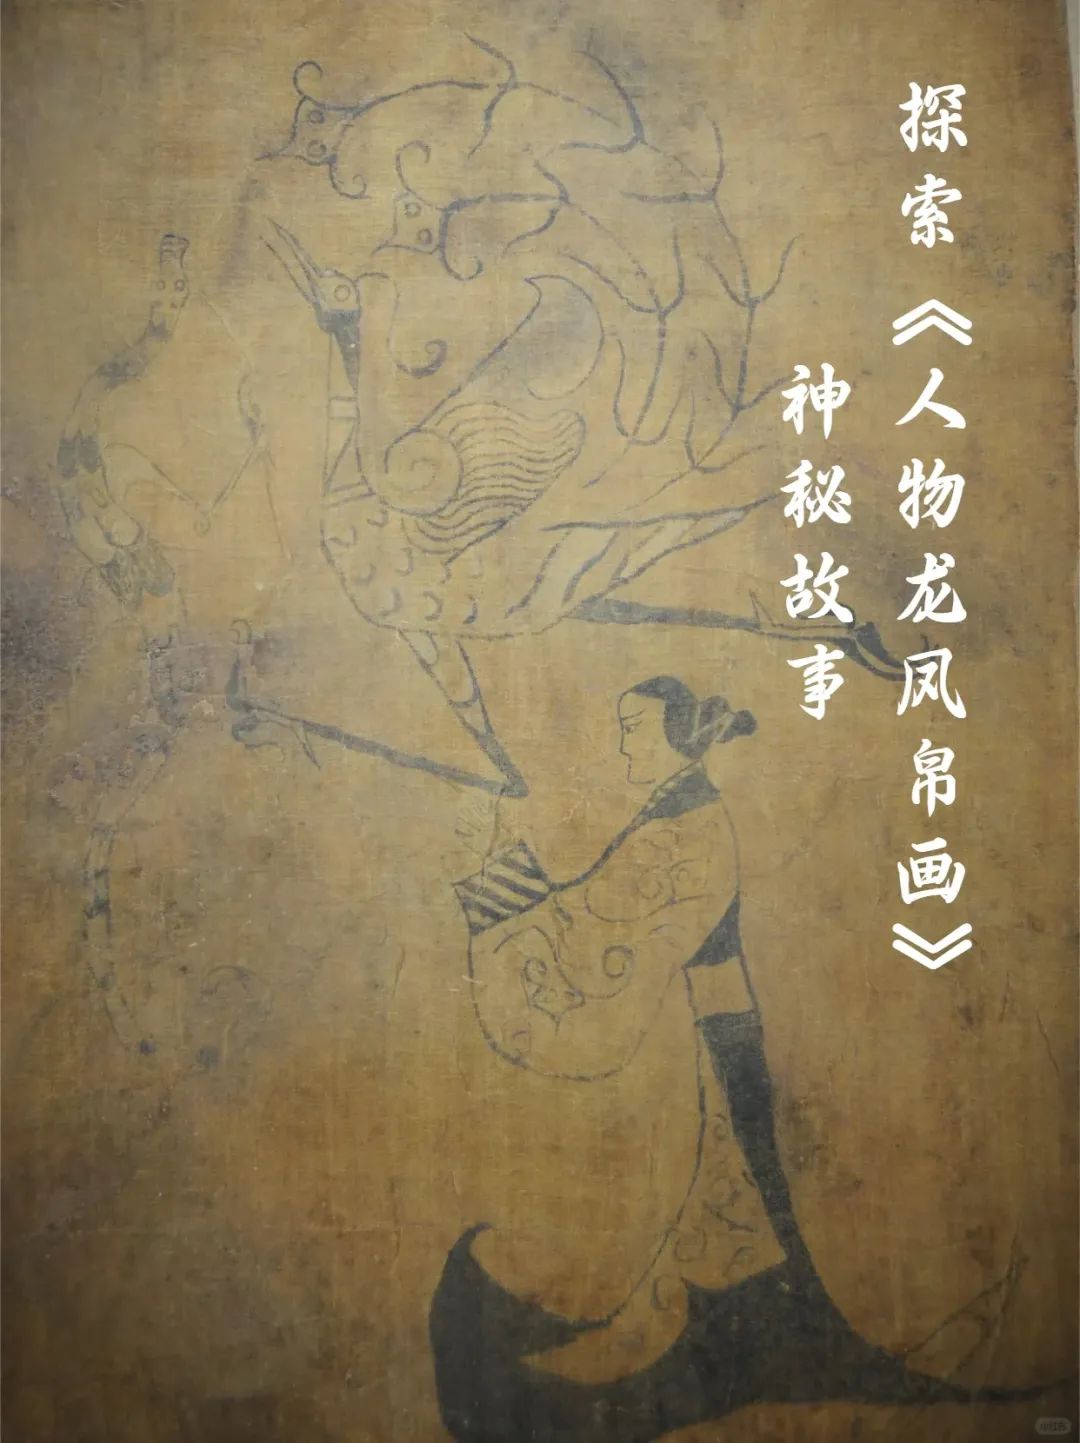 探索《人物龙凤帛画》
神秘故事
小红书